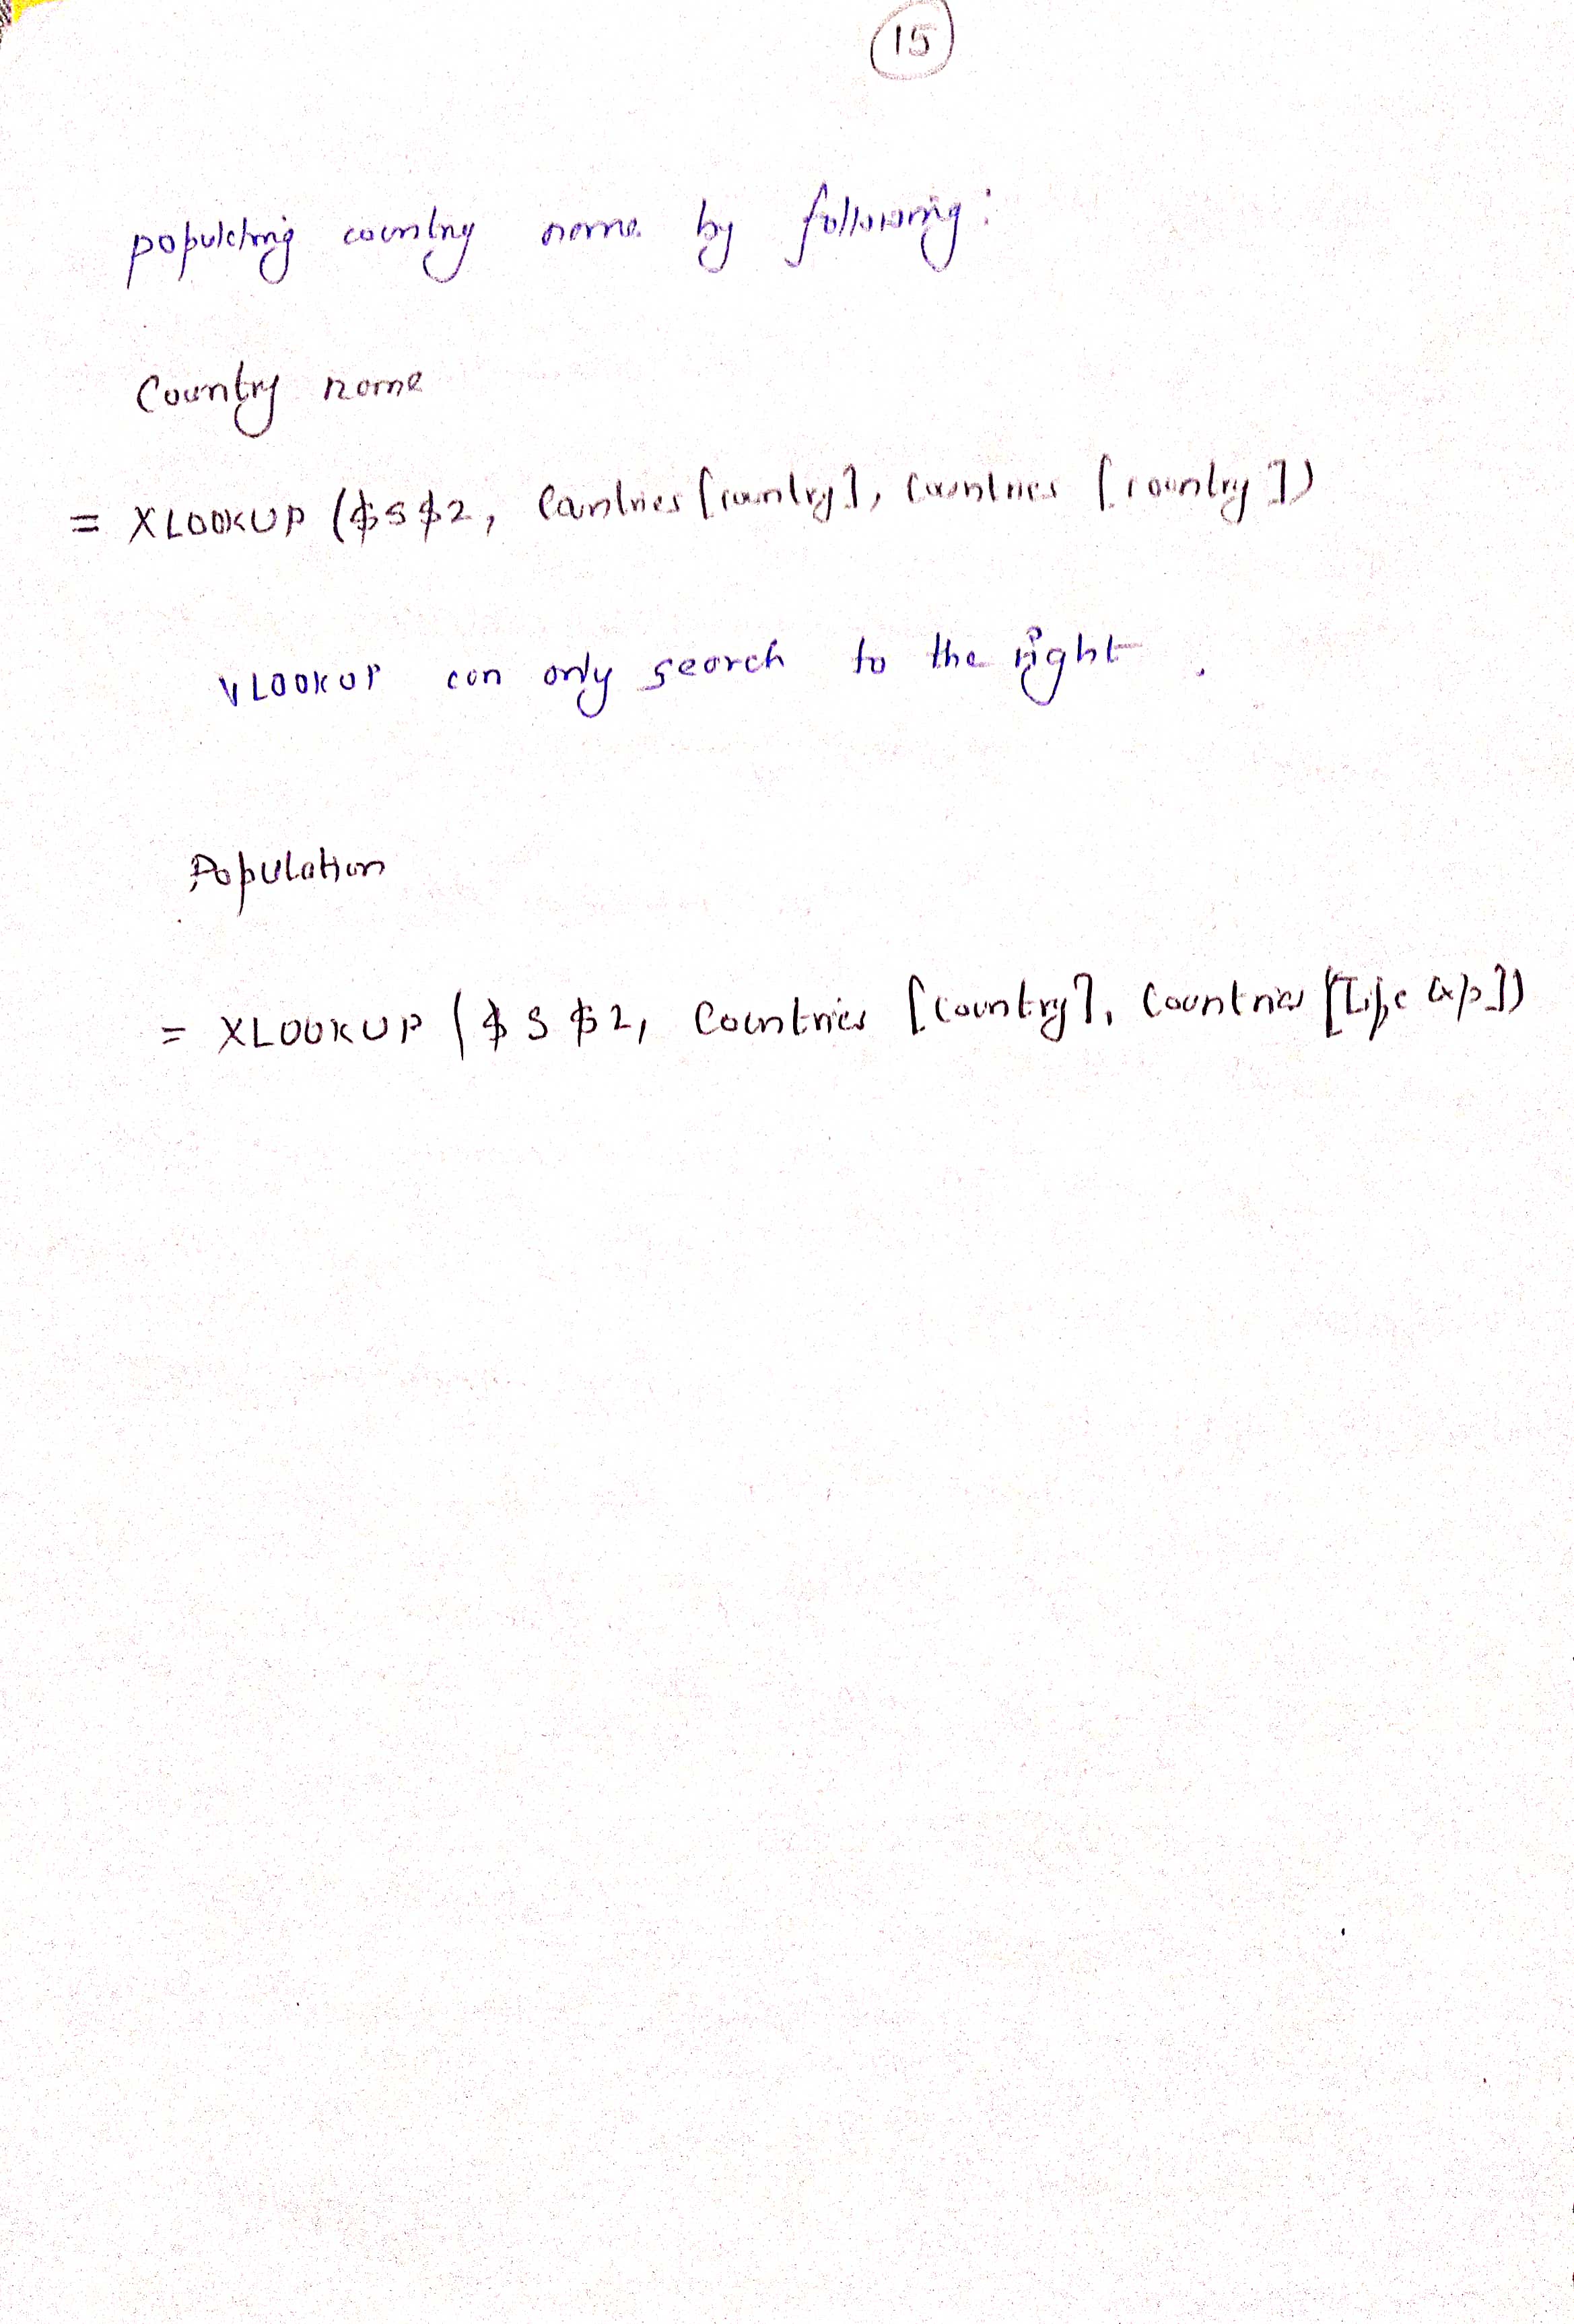 15
populating country name by following:
Country name
= XLOOKUP ($S$2, Countries [country], Countries [country])
VLOOKUP can only search to the right.
Population
= XLOOKUP ($S$2, Countries [country], Countries [Life Exp])